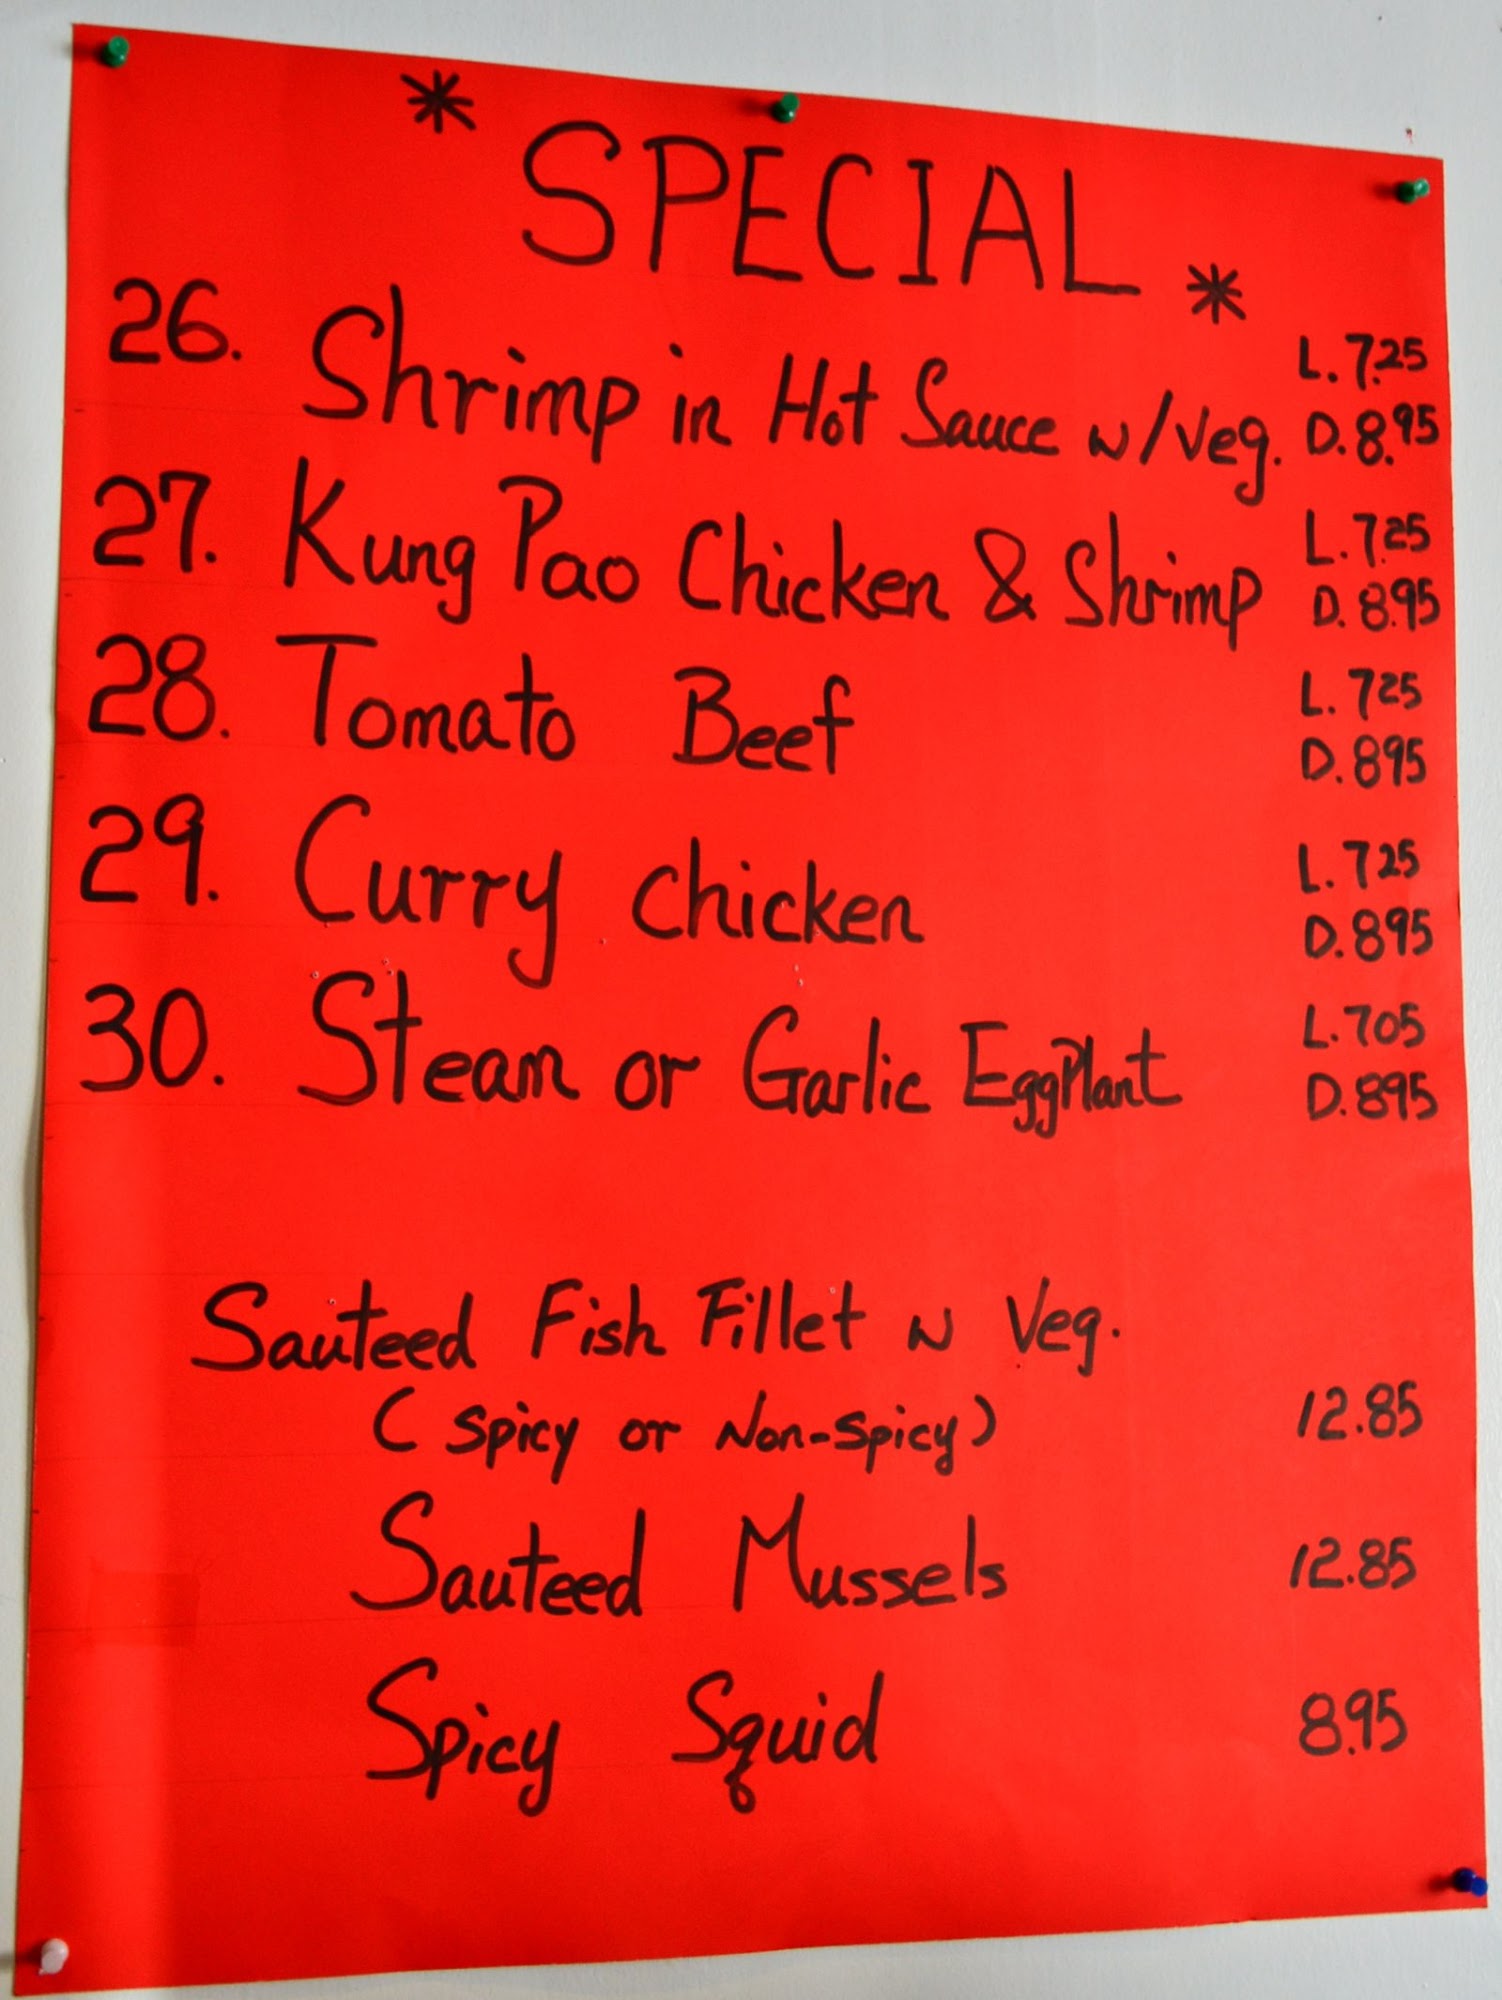 * SPECIAL *
26. Shrimp in Hot Sauce w/Veg. L. 7.25
D. 8.95
27. Kung Pao Chicken & Shrimp L. 7.25
D. 8.95
28. Tomato Beef L. 725
D. 895
29. Curry chicken L. 725
D. 895
30. Steam or Garlic EggPlant L. 705
D. 895
Sauteed Fish Fillet w Veg.
(spicy or Non-spicy) 12.85
Sauteed Mussels 12.85
Spicy Squid 8.95